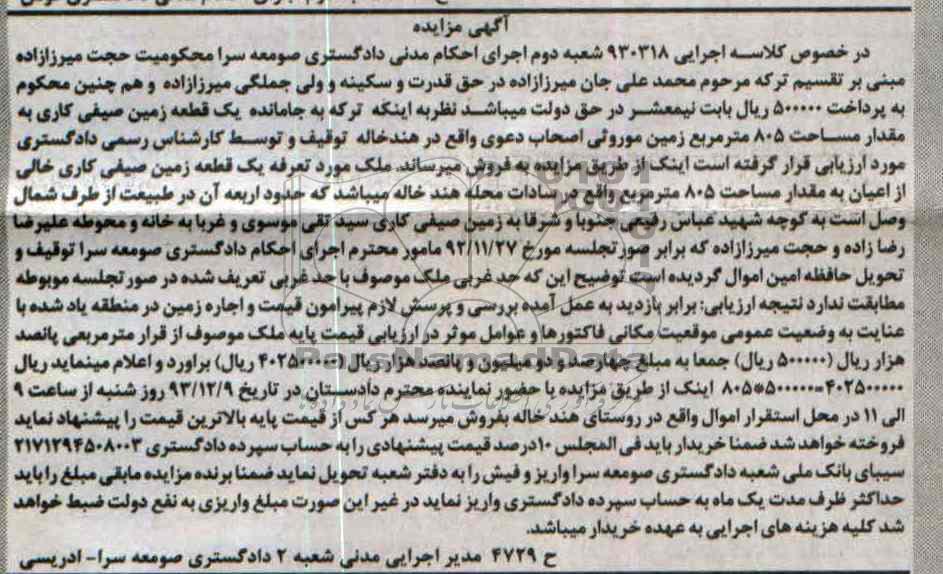 آگهی مزایده
در خصوص کلاسه اجرایی ۹۳۰۳۱۸ شعبه دوم اجرای احکام مدنی دادگستری صومعه سرا محکومیت حجت میرزازاده
مبنی بر تقسیم ترکه مرحوم محمد علی جان میرزازاده در حق قدرت و سکینه و ولی جملگی میرزازاده و هم چنین محکوم
به پرداخت ۵۰۰۰۰۰ ریال بابت نیمعشر در حق دولت میباشد نظر به اینکه ترکه به جامانده یک قطعه زمین صیفی کاری به
مقدار مساحت ۸۰۵ مترمربع زمین موروثی اصحاب دعوی واقع در هندخاله توقیف و توسط کارشناس رسمی دادگستری
مورد ارزیابی قرار گرفته است اینک از طریق مزایده به فروش میرساند. ملک مورد تعرفه یک قطعه زمین صیفی کاری خالی
از اعیان به مقدار مساحت ۸۰۵ مترمربع واقع در سادات محله هند خاله میباشد که حدود اربعه آن در طبیعت از طرف شمال
وصل است به کوچه شهید عباس رفیعی جنوبا و شرقا به زمین صیفی کاری سید تقی موسوی و غربا به خانه و محوطه علیرضا
رضا زاده و حجت میرزازاده که برابر صورتجلسه مورخ ۹۲/۱۱/۲۷ مامور محترم اجرای احکام دادگستری صومعه سرا توقیف و
تحویل حافظه امین اموال گردیده است توضیح این که حد غربی ملک موصوف با حد غربی تعریف شده در صورتجلسه موبوطه
مطابقت ندارد نتیجه ارزیابی: برابر بازدید به عمل آمده بررسی و پرسش لازم پیرامون قیمت و اجاره زمین در منطقه یاد شده با
عنایت به وضعیت عمومی موقعیت مکانی فاکتورها و عوامل موثر در ارزیابی قیمت پایه ملک موصوف از قرار مترمربعی پانصد
هزار ریال (۵۰۰۰۰۰ ریال) جمعا به مبلغ چهارصد و دو میلیون و پانصد هزار ریال ریال) براورد و اعلام مینماید ریال
۴۰۲۵۰۰۰۰۰=۵۰۰۰۰۰*۸۰۵ اینک از طریق مزایده با حضور نماینده محترم دادستان در تاریخ ۹۳/۱۲/۹ روز شنبه از ساعت ۹
الی ۱۱ در محل استقرار اموال واقع در روستای هند خاله بفروش میرسد هر کس از قیمت پایه بالاترین قیمت را پیشنهاد نماید
فروخته خواهد شد ضمنا خریدار باید فی المجلس ۱۰درصد قیمت پیشنهادی را به حساب سپرده دادگستری ۲۱۷۱۲۹۴۵۰۸۰۰۳
سیبای بانک ملی شعبه دادگستری صومعه سرا واریز و فیش را به دفتر شعبه تحویل نماید ضمنا برنده مزایده مابقی مبلغ را باید
حداکثر ظرف مدت یک ماه به حساب سپرده دادگستری واریز نماید در غیر این صورت مبلغ واریزی به نفع دولت ضبط خواهد
شد کلیه هزینه های اجرایی به عهده خریدار میباشد.
ح ۴۷۲۹ مدیر اجرایی مدنی شعبه ۲ دادگستری صومعه سرا- ادریسی
ParsNamadData